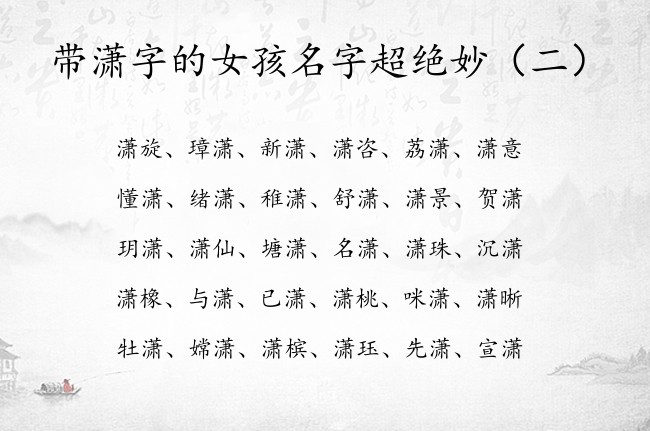 带潇字的女孩名字超绝妙（二）
潇旋、璋潇、新潇、潇咨、荔潇、潇意
懂潇、绪潇、稚潇、舒潇、潇景、贺潇
玥潇、潇仙、塘潇、名潇、潇珠、沉潇
潇橡、与潇、已潇、潇桃、咪潇、潇晰
牡潇、嫦潇、潇槟、潇珏、先潇、宣潇